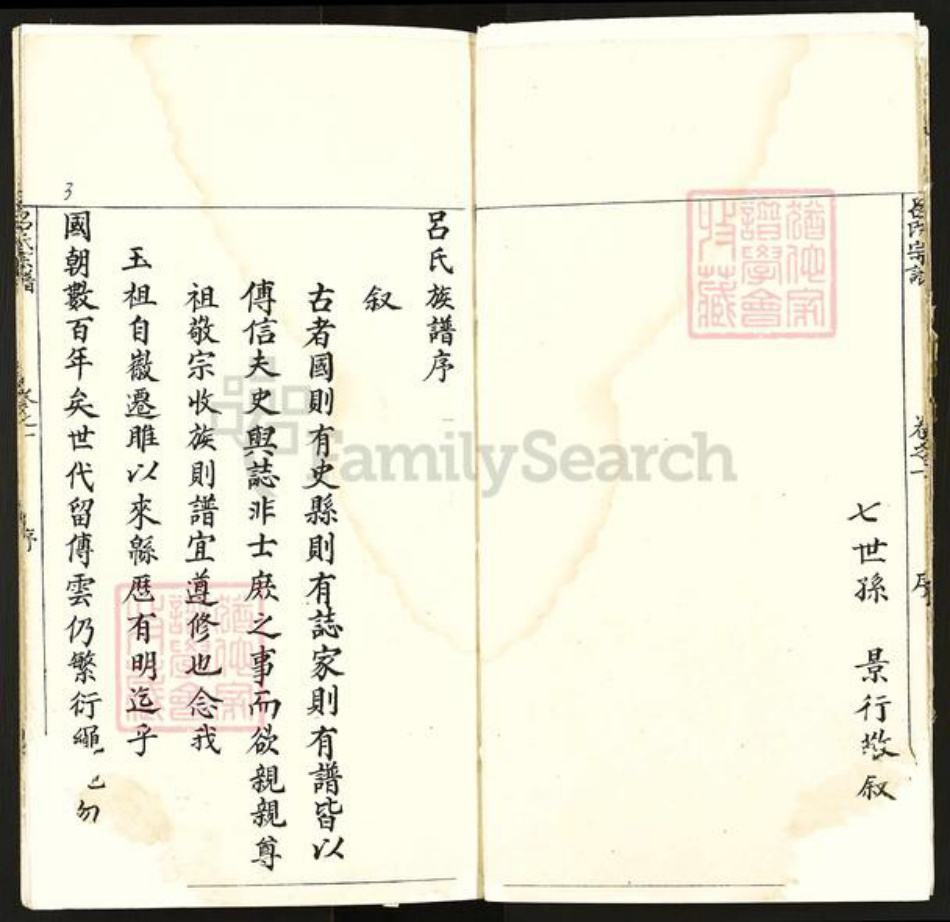 七世孫 景行敬叙
呂氏族譜序
叙
古者國則有史縣則有誌家則有譜皆以
傳信夫史與誌非士庶之事而欲親親尊
祖敬宗收族則譜宜遵修也念我
玉祖自徽遷睢以來緜歷有明迄乎
國朝數百年矣世代留傳雲仍繁衍繩
勿
3
卷之一
序
FamilySearch
譜學會
收藏